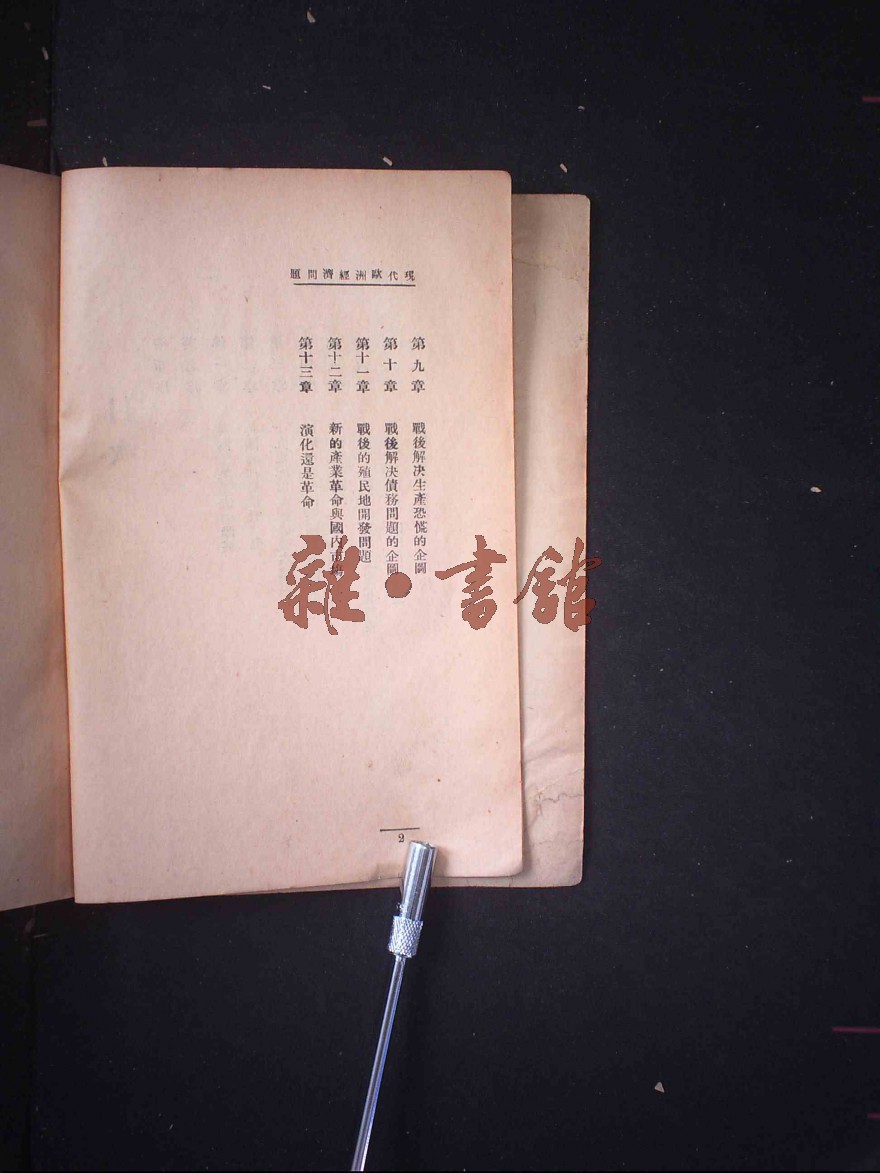 現代歐洲經濟問題
第九章 戰後解决生產恐慌的企圖
第十章 戰後解决債務問題的企圖
第十一章 戰後的殖民地開發問題
第十二章 新的產業革命與國內市場
第十三章 演化還是革命
2
雜·書館